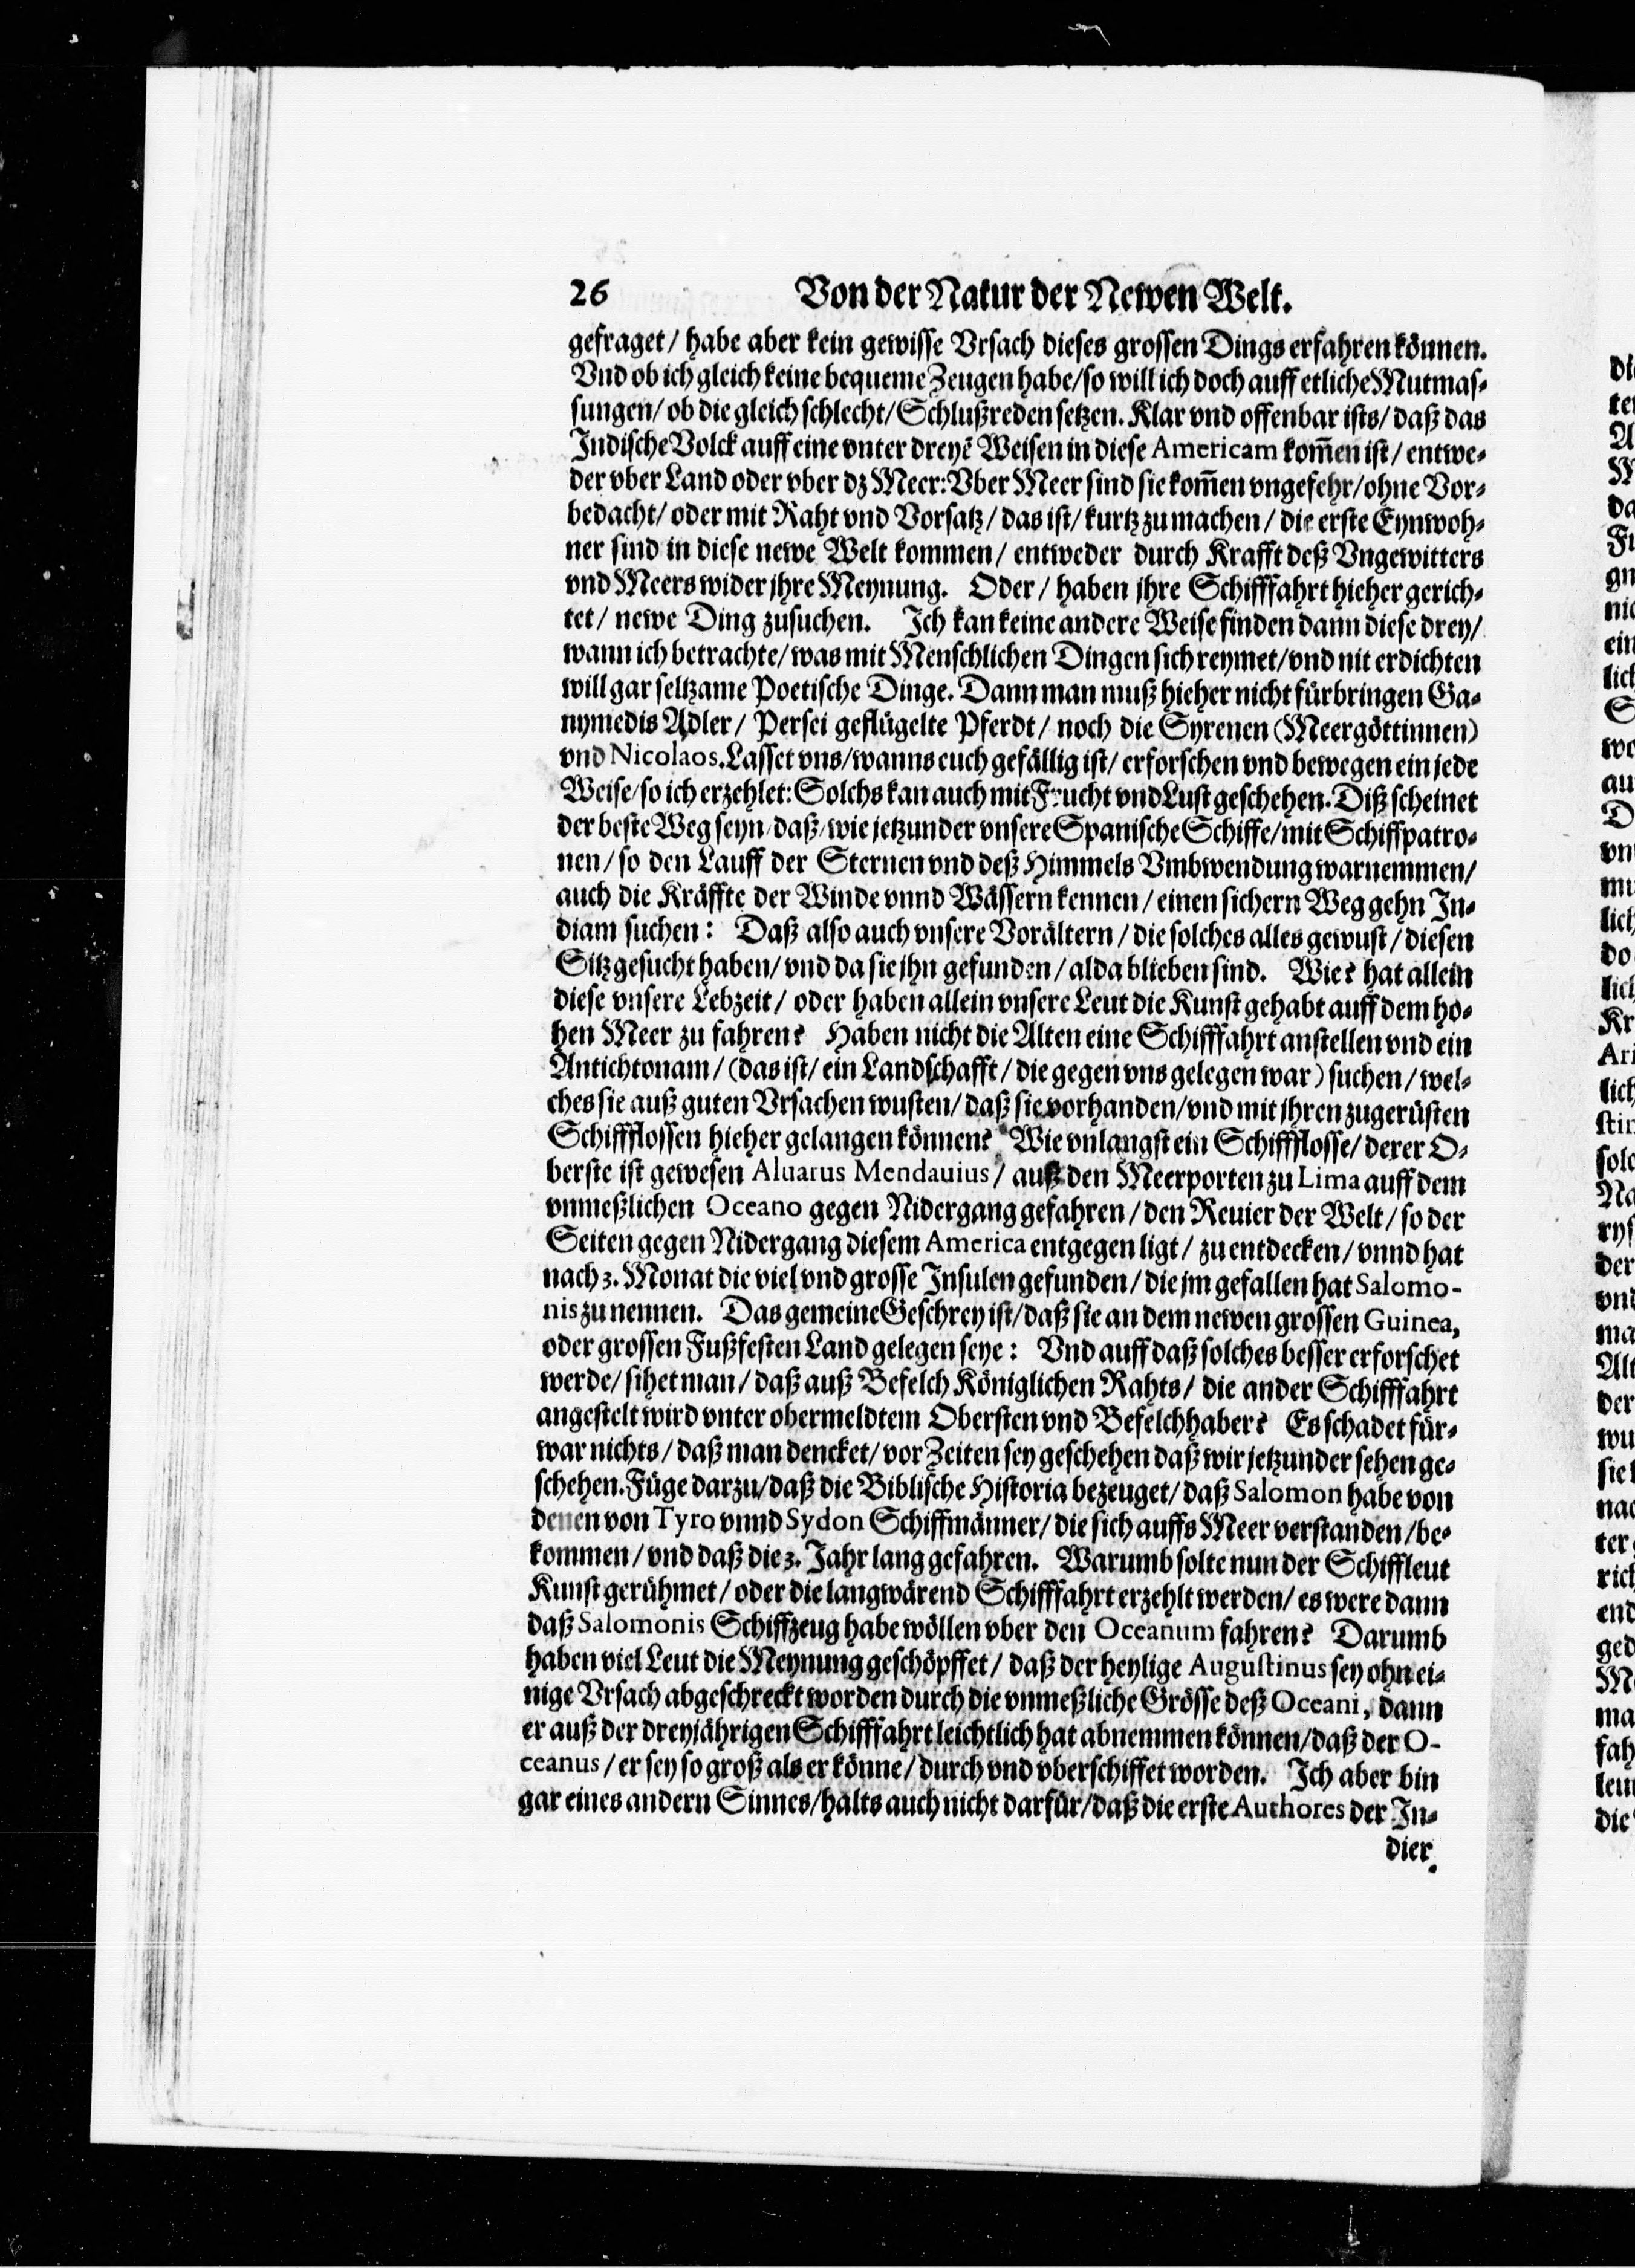 26 Von der Natur der Newen Welt.
gefraget/ habe aber kein gewisse Vrsach dieses grossen Dings erfahren können.
Vnd ob ich gleich keine bequeme Zeugen habe/so will ich doch auff etliche Mutmas-
sungen/ ob die gleich schlecht/Schlußreden setzen. Klar vnd offenbar ists/ daß das
Indische Volck auff eine vnter dreyẽ Weisen in diese Americam kom̃en ist/ entwe-
der vber Land oder vber dz Meer: Vber Meer sind sie kom̃en vngefehr/ohne Vor-
bedacht/ oder mit Raht vnd Vorsatz/ das ist/ kurtz zu machen/ die erste Eynwoh-
ner sind in diese newe Welt kommen/ entweder durch Krafft deß Vngewitters
vnd Meers wider jhre Meynung. Oder/ haben jhre Schifffahrt hieher gerich-
tet/ newe Ding zusuchen. Ich kan keine andere Weise finden dann diese drey/
wann ich betrachte/was mit Menschlichen Dingen sich reymet/vnd nit erdichten
will gar seltzame Poetische Dinge. Dann man muß hieher nicht fürbringen Ga-
nymedis Adler/ Persei geflügelte Pferdt/ noch die Syrenen (Meergöttinnen)
vnd Nicolaos. Lasset vns/wanns euch gefällig ist/ erforschen vnd bewegen ein jede
Weise/so ich erzehlet: Solchs kan auch mit Frucht vnd Lust geschehen. Diß scheinet
der beste Weg seyn/daß/wie jetzunder vnsere Spanische Schiffe/mit Schiffpatro-
nen/ so den Lauff der Sternen vnd deß Himmels Vmbwendung warnemmen/
auch die Kräffte der Winde vnnd Wässern kennen/ einen sichern Weg gehn In-
diam suchen: Daß also auch vnsere Vorältern/ die solches alles gewust/ diesen
Sitz gesucht haben/ vnd da sie jhn gefunden/ alda blieben sind. Wie? hat allein
diese vnsere Lebzeit/ oder haben allein vnsere Leut die Kunst gehabt auff dem ho-
hen Meer zu fahren? Haben nicht die Alten eine Schifffahrt anstellen vnd ein
Antichtonam/ (das ist/ ein Landschafft/ die gegen vns gelegen war) suchen/ wel-
ches sie auß guten Vrsachen wusten/ daß sie vorhanden/vnd mit jhren zugerüsten
Schiffflossen hieher gelangen können? Wie vnlangst ein Schiffflosse/ derer O-
berste ist gewesen Aluarus Mendauius/ auß den Meerporten zu Lima auff dem
vnmeßlichen Oceano gegen Nidergang gefahren/ den Reuier der Welt/ so der
Seiten gegen Nidergang diesem America entgegen ligt/ zu entdecken/ vnnd hat
nach 3. Monat die viel vnd grosse Insulen gefunden/ die jm gefallen hat Salomo-
nis zu nennen. Das gemeine Geschrey ist/ daß sie an dem newen grossen Guinea,
oder grossen Fußfesten Land gelegen seye: Vnd auff daß solches besser erforschet
werde/ sihet man/ daß auß Befelch Königlichen Rahts/ die ander Schifffahrt
angestelt wird vnter obermeldtem Obersten vnd Befelchhaber? Es schadet für-
war nichts/ daß man dencket/ vor Zeiten sey geschehen daß wir jetzunder sehen ge-
schehen. Füge darzu/daß die Biblische Historia bezeuget/ daß Salomon habe von
denen von Tyro vnnd Sydon Schiffmänner/ die sich auffs Meer verstanden/be-
kommen/ vnd daß die 3. Jahr lang gefahren. Warumb solte nun der Schiffleut
Kunst gerühmet/ oder die langwärend Schifffahrt erzehlt werden/ es were dann
daß Salomonis Schiffzeug habe wöllen vber den Oceanum fahren? Darumb
haben viel Leut die Meynung geschöpffet/ daß der heylige Augustinus sey ohn ei-
nige Vrsach abgeschreckt worden durch die vnmeßliche Grösse deß Oceani, dann
er auß der dreyjährigen Schifffahrt leichtlich hat abnemmen können/daß der O-
ceanus/ er sey so groß als er könne/ durch vnd vberschiffet worden. Ich aber bin
gar eines andern Sinnes/halts auch nicht darfür/daß die erste Authores der In-
dier